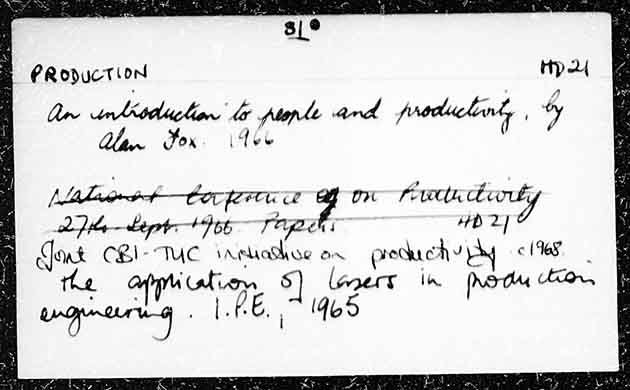 31
PRODUCTION HD 21
An introduction to people and productivity, by
Alan Fox. 1966
National Conference on Productivity
27th Sept. 1966. Papers HD 21
Joint CBI-TUC initiative on productivity c1968.
The application of lasers in production
engineering. I.P.E., 1965